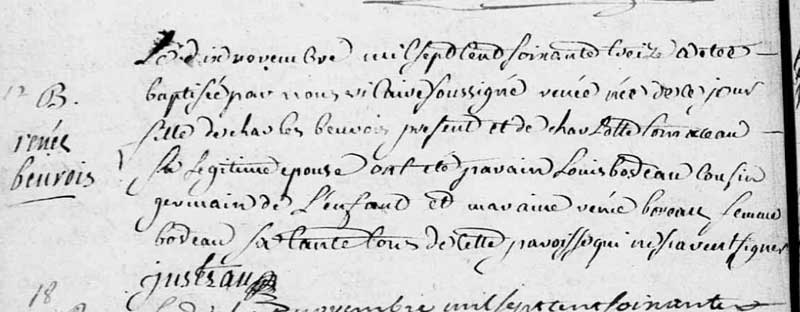 Le dix novembre mil sept cent soixante treize a eté
12 B. baptisée par nous vicaire soussigné renée née de ce jour
renée fille de charles beurois present et de charlotte
beurois sa legitime epouse ont été parain Louis bodeau cousin
germain de L'enfant et maraine renée femme
bodeau sa tante tous de cette paroisse qui ne savent signer
18
novembre mil sept cent soixante